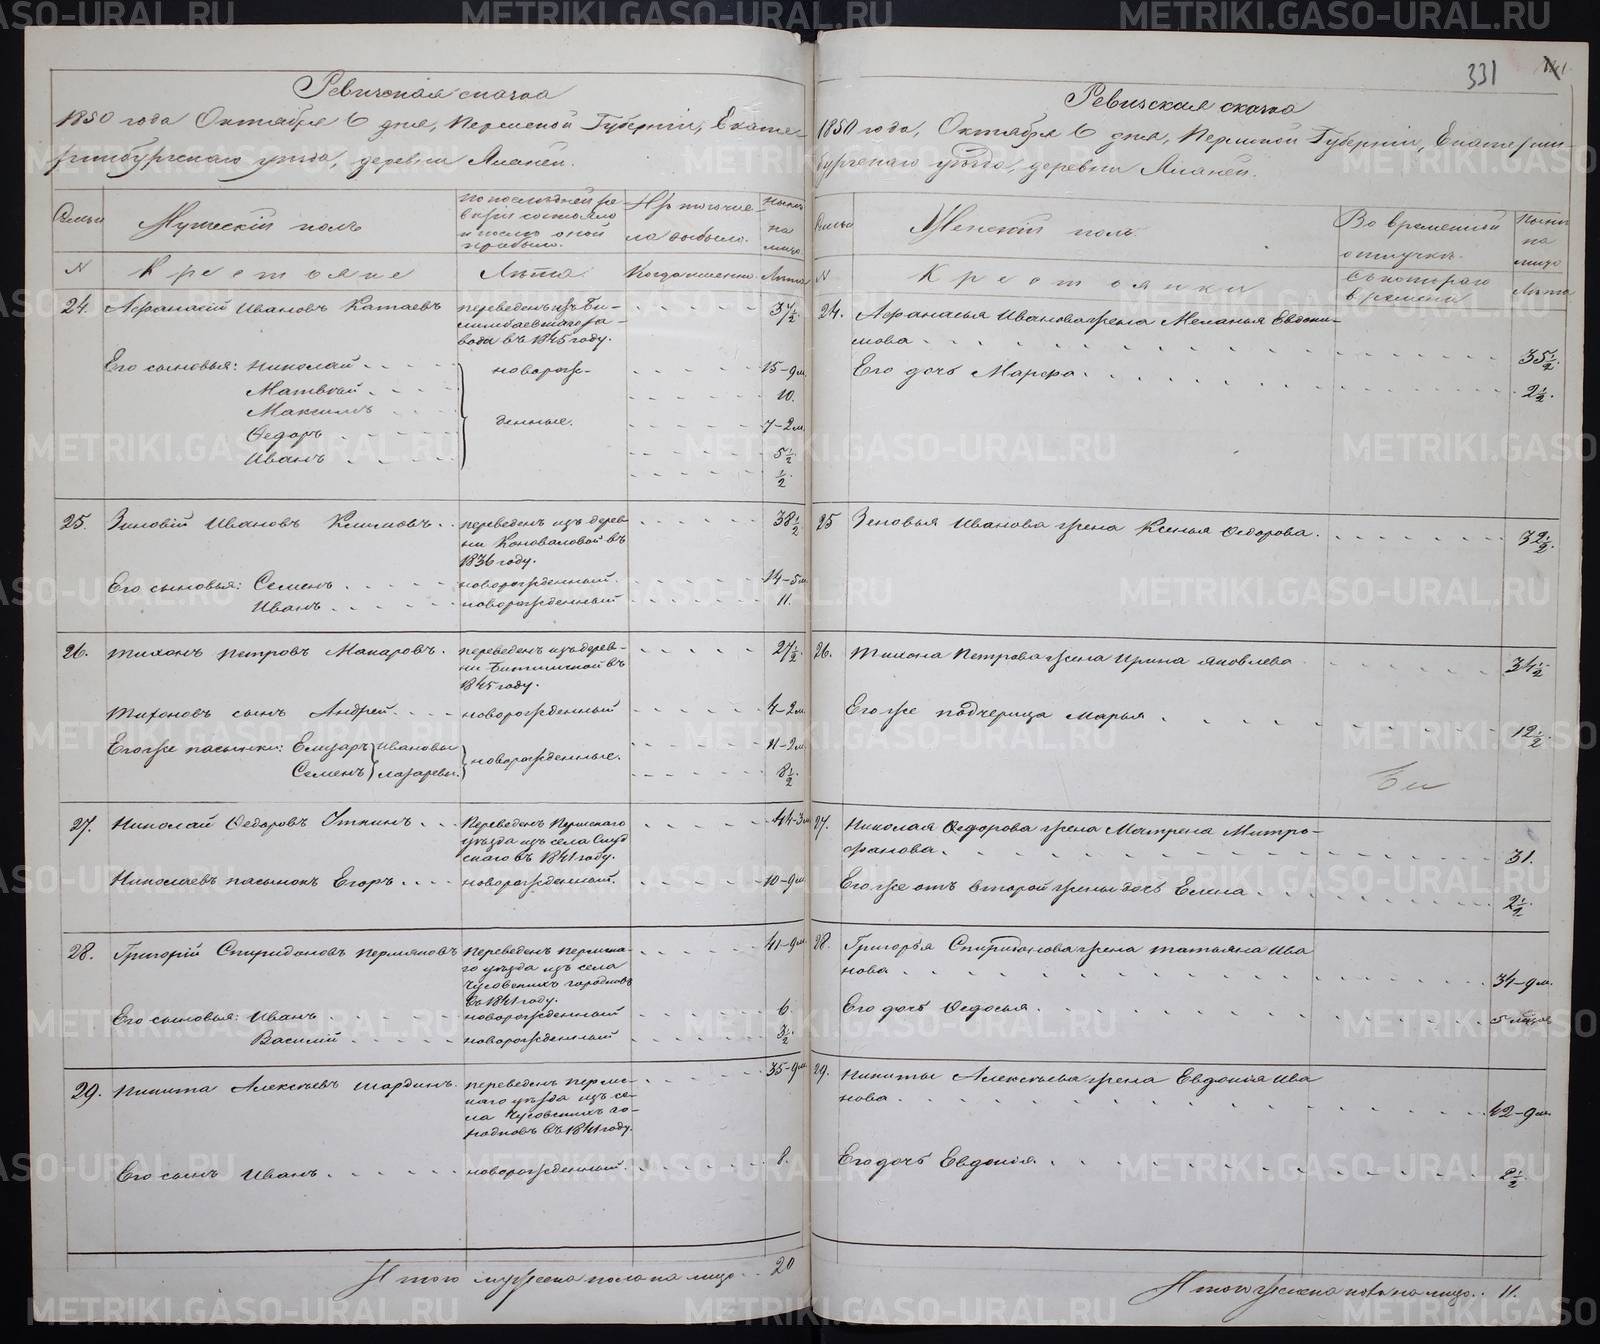 Ревизская сказка
1850 года Октября 6 дня, Пермской Губернiи, Екате-
ринбургскаго уѣзда, деревни Талицы
Семьи
Мужескiй полъ
По послѣдней ре-
визiи состояло
и послѣ оной
прибыло.
Изъ того чис-
ла выбыло.
Нынѣ
на
лицо
N
Крестьяне
Лѣта
Когда именно.
Лѣта
24. Афанасiй Ивановъ Катаевъ переведенъ изъ Би- 37 1/2
лимбаевскаго за-
вода въ 1845 году.
Его сыновья: Николай новорож- 15-9 м.
Матвѣй 10.
Максимъ денные. 7-2 м.
Ѳедоръ 5 1/2
Иванъ 1/2
25. Зиновiй Ивановъ Климовъ переведенъ изъ дерев- 38 1/2
ни Коноваловой въ
1836 году.
Его сыновья: Семенъ новорожденный. 14-5 м.
Иванъ новорожденный 11.
26. Тихонъ Петровъ Макаровъ переведенъ изъ дерев- 27 1/2
ни въ
1845 году.
Тихоновъ сынъ Андрей новорожденный 4-2 м.
Егоже пасынки: Елизаръ Ивановы новорожденные. 11-2 м.
Семенъ Лазаревы. 8 1/2
27. Николай Ѳедоровъ Уткинъ Переведенъ Пермскаго 44-3 м
уѣзда изъ села Слуд
скаго въ 1841 году.
Николаевъ пасынокъ Егоръ новорожденный. 10-9 м.
28. Григорiй Спиридоновъ Пермяковъ Переведенъ Пермска- 41-9 м.
го уѣзда изъ села
Чусовскихъ городковъ
въ 1841 году.
Его сыновья: Иванъ новорожденный 6.
Василiй новорожденный 3 1/2
29. Никита Алексѣевъ Шардинъ. переведенъ Перм- 35-9 м
скаго уѣзда изъ се-
ла Чусовскихъ го-
родковъ въ 1841 году.
Его сынъ Иванъ новорожденный 8.
Итого мужеска пола на лицо 20
331
Ревизская сказка
1850 года, Октября 6 дня, Пермской Губернiи, Екатерин-
бургскаго уѣзда, деревни Талицы.
Семьи
Женскiй полъ.
Во временной
отлучкѣ.
Нынѣ
на
лицо
N
Крестьянки
Съ котораго
времени
Лѣта
24. Афанасья Иванова жена Меланья Евдоки-
мова 35 1/2.
Его дочь Марфа 2 1/2.
25 Зиновья Иванова жена Ксенья Ѳедорова 32 1/2.
26. Тихона Петрова жена Ирина Яковлева 34 1/2
Егоже падчерица Марья 12 1/2
27. Николая Ѳедорова жена Матрена Митро-
фанова 31.
Егоже отъ второй жены дочь Елена 2 1/2
28. Григорья Спиридонова жена Татьяна Ива
нова 34-9 м.
Его дочь Ѳедосья 5 мѣсяц
29. Никиты Алексѣева жена Евдокiя Ива
нова 42-9 м.
Его дочь Евдокiя 2 1/2
Итого женска пола на лицо 11.
METRIKI.GASO-URAL.RU